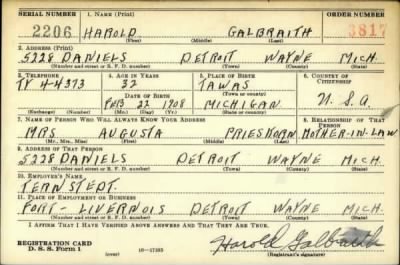 SERIAL NUMBER 1. NAME (Print) ORDER NUMBER
2206 HAROLD GALBRAITH 3817
(First) (Middle) (Last)
2. ADDRESS (Print)
5228 DANIELS DETROIT WAYNE MICH.
(Number and street or R. F. D. number) (Town) (County) (State)
3. TELEPHONE 4. AGE IN YEARS 5. PLACE OF BIRTH 6. COUNTRY OF CITIZENSHIP
TY 4-4373 32 TAWAS
DATE OF BIRTH (Town or county)
FEB 22 1908 MICHIGAN U. S. A.
(Exchange) (Number) (Mo.) (Day) (Yr.) (State or country)
7. NAME OF PERSON WHO WILL ALWAYS KNOW YOUR ADDRESS 8. RELATIONSHIP OF THAT PERSON
MRS AUGUSTA PRIESHORN MOTHER-IN-LAW
(Mr., Mrs., Miss) (First) (Middle) (Last)
9. ADDRESS OF THAT PERSON
5228 DANIELS DETROIT WAYNE MICH
(Number and street or R. F. D. number) (Town) (County) (State)
10. EMPLOYER'S NAME
TERNSTEDT.
11. PLACE OF EMPLOYMENT OR BUSINESS
FORT - LIVERNOIS DETROIT WAYNE MICH.
(Number and street or R. F. D. number) (Town) (County) (State)
I AFFIRM THAT I HAVE VERIFIED ABOVE ANSWERS AND THAT THEY ARE TRUE.
REGISTRATION CARD
D. S. S. Form 1 (over) 16-17105 Harold Galbraith
(Registrant's signature)